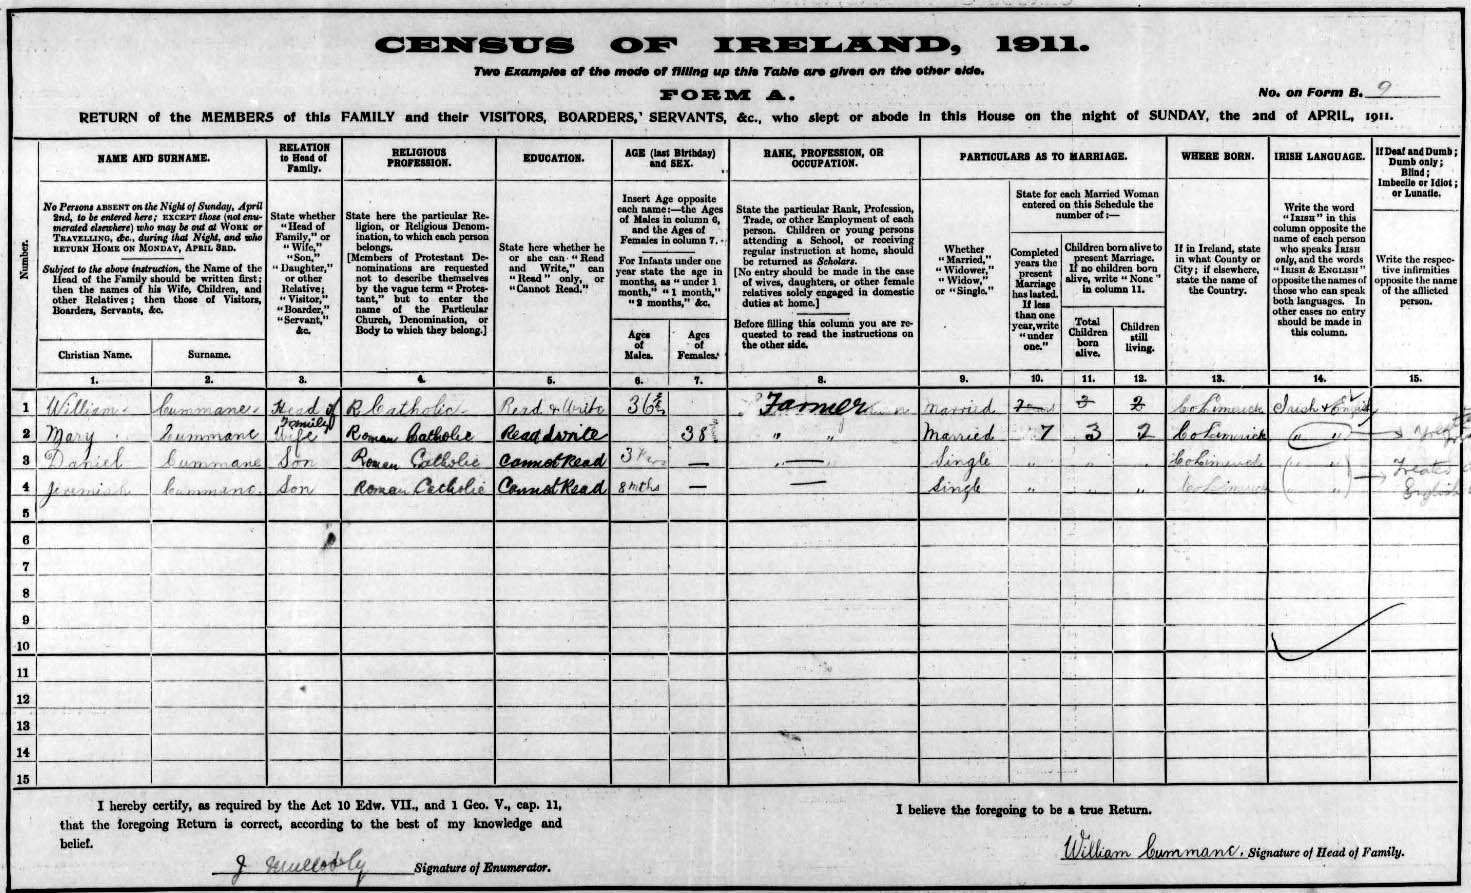 CENSUS OF IRELAND, 1911.
Two Examples of the mode of filling up this Table are given on the other side.
FORM A.
No. on Form B. 9
RETURN of the MEMBERS of this FAMILY and their VISITORS, BOARDERS, SERVANTS, &c., who slept or abode in this House on the night of SUNDAY, the 2nd of APRIL, 1911.
Number.
NAME AND SURNAME.
No Persons ABSENT on the Night of Sunday, April
2nd, to be entered here; EXCEPT those (not enu-
merated elsewhere) who may be out at WORK or
TRAVELLING, &c., during that Night, and who
RETURN HOME ON MONDAY, APRIL 3RD.
Subject to the above instruction, the Name of the
Head of the Family should be written first;
then the names of his Wife, Children, and
other Relatives; then those of Visitors,
Boarders, Servants, &c.
Christian Name.
Surname.
RELATION
to Head of
Family.
State whether
"Head of
Family," or
"Wife,"
"Son,"
"Daughter,"
or other
Relative;
"Visitor,"
"Boarder,"
"Servant,"
&c.
RELIGIOUS
PROFESSION.
State here the particular Re-
ligion, or Religious Denom-
ination, to which each person
belongs.
[Members of Protestant De-
nominations are requested
not to describe themselves
by the vague term "Protes-
tant," but to enter the
name of the Particular
Church, Denomination, or
Body to which they belong.]
EDUCATION.
State here whether he
or she can "Read
and Write," can
"Read" only, or
"Cannot Read."
AGE (last Birthday)
and SEX.
Insert Age opposite
each name:—the Ages
of Males in column 6,
and the Ages of
Females in column 7.
For Infants under one
year state the age in
months, as "under 1
month," "1 month,"
"2 months," &c.
Ages
of
Males.
Ages
of
Females.
RANK, PROFESSION, OR
OCCUPATION.
State the particular Rank, Profession,
Trade, or other Employment of each
person. Children or young persons
attending a School, or receiving
regular instruction at home, should
be returned as Scholars.
[No entry should be made in the case
of wives, daughters, or other female
relatives solely engaged in domestic
duties at home.]
Before filling this column you are re-
quested to read the instructions on
the other side.
PARTICULARS AS TO MARRIAGE.
Whether
"Married,"
"Widower,"
"Widow,"
or "Single."
State for each Married Woman
entered on this Schedule the
number of:—
Completed
years the
present
Marriage
has lasted.
If less
than one
year, write
"under
one."
Children born alive to
present Marriage.
If no children born
alive, write "None"
in column 11.
Total
Children
born
alive.
Children
still
living.
WHERE BORN.
If in Ireland, state
in what County or
City; if elsewhere,
state the name of
the Country.
IRISH LANGUAGE.
Write the word
"IRISH" in this
column opposite the
name of each person
who speaks IRISH
only, and the words
"IRISH & ENGLISH"
opposite the names of
those who can speak
both languages. In
other cases no entry
should be made in
this column.
If Deaf and Dumb;
Dumb only;
Blind;
Imbecile or Idiot;
or Lunatic.
Write the respec-
tive infirmities
opposite the name
of the afflicted
person.
1. 2. 3. 4. 5. 6. 7. 8. 9. 10. 11. 12. 13. 14. 15.
1 William Cummane Head of Family R Catholic Read & Write 36 Farmer Married 7 3 2 Co Limerick Irish & English
2 Mary Cummane Wife Roman Catholic Read & write 38 " " Married 7 3 2 Co Limerick " "
3 Daniel Cummane Son Roman Catholic Cannot Read 3 — " — " Single " " " Co Limerick " "
4 Jermiah Cummane Son Roman Catholic Cannot Read 8 mths — — Single " " " Co Limerick " " English
5
6
7
8
9
10
11
12
13
14
15
I hereby certify, as required by the Act 10 Edw. VII., and 1 Geo. V., cap. 11,
that the foregoing Return is correct, according to the best of my knowledge and
belief.
J Signature of Enumerator.
I believe the foregoing to be a true Return.
William Cummane. Signature of Head of Family.